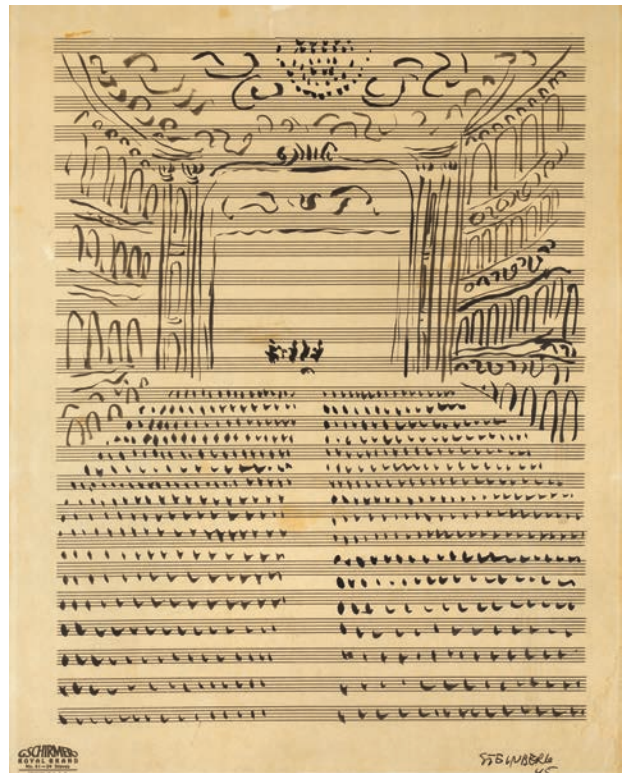 G. SCHIRMER
ROYAL BRAND
No. 51—24 Staves
STEINBERG
45